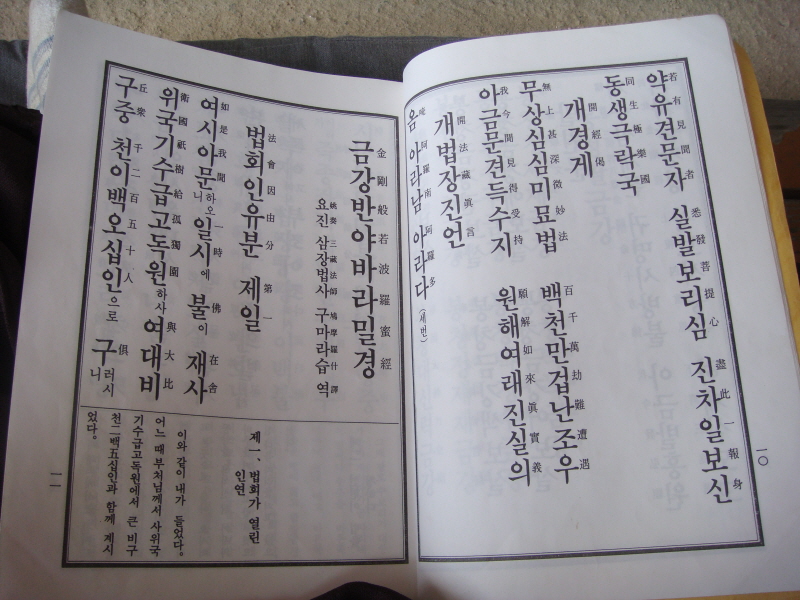 약유견문자 실발보리심 진차일보신
若有見聞者 悉發菩提心 盡此一報身
동생극락국
同生極樂國
개경게
開經偈
무상심심미묘법 백천만겁난조우
無上甚深微妙法 百千萬劫難遭遇
아금문견득수지 원해여래진실의
我今聞見得受持 願解如來眞實義
개법장진언
開法藏眞言
옴 아라남 아라다 (세번)
唵 阿羅南 阿羅多
一〇
금강반야바라밀경
金剛般若波羅蜜經
요진 삼장법사 구마라습 역
姚秦 三藏法師 鳩摩羅什 譯
법회인유분 제일
法會因由分 第一
여시아문하오니 일시에 불이 재사
如是我聞 一時 佛 在舍
위국기수급고독원하사 여대비
衛國祇樹給孤獨園 與大比
구중 천이백오십인으로 구러시니
丘衆 千二百五十人 俱
제一、 법회가 열린
인연
이와 같이 내가 들었다.
어느 때 부처님께서 사위국
기수급고독원에서 큰 비구
천二백五십인과 함께 계시
었다.
一一